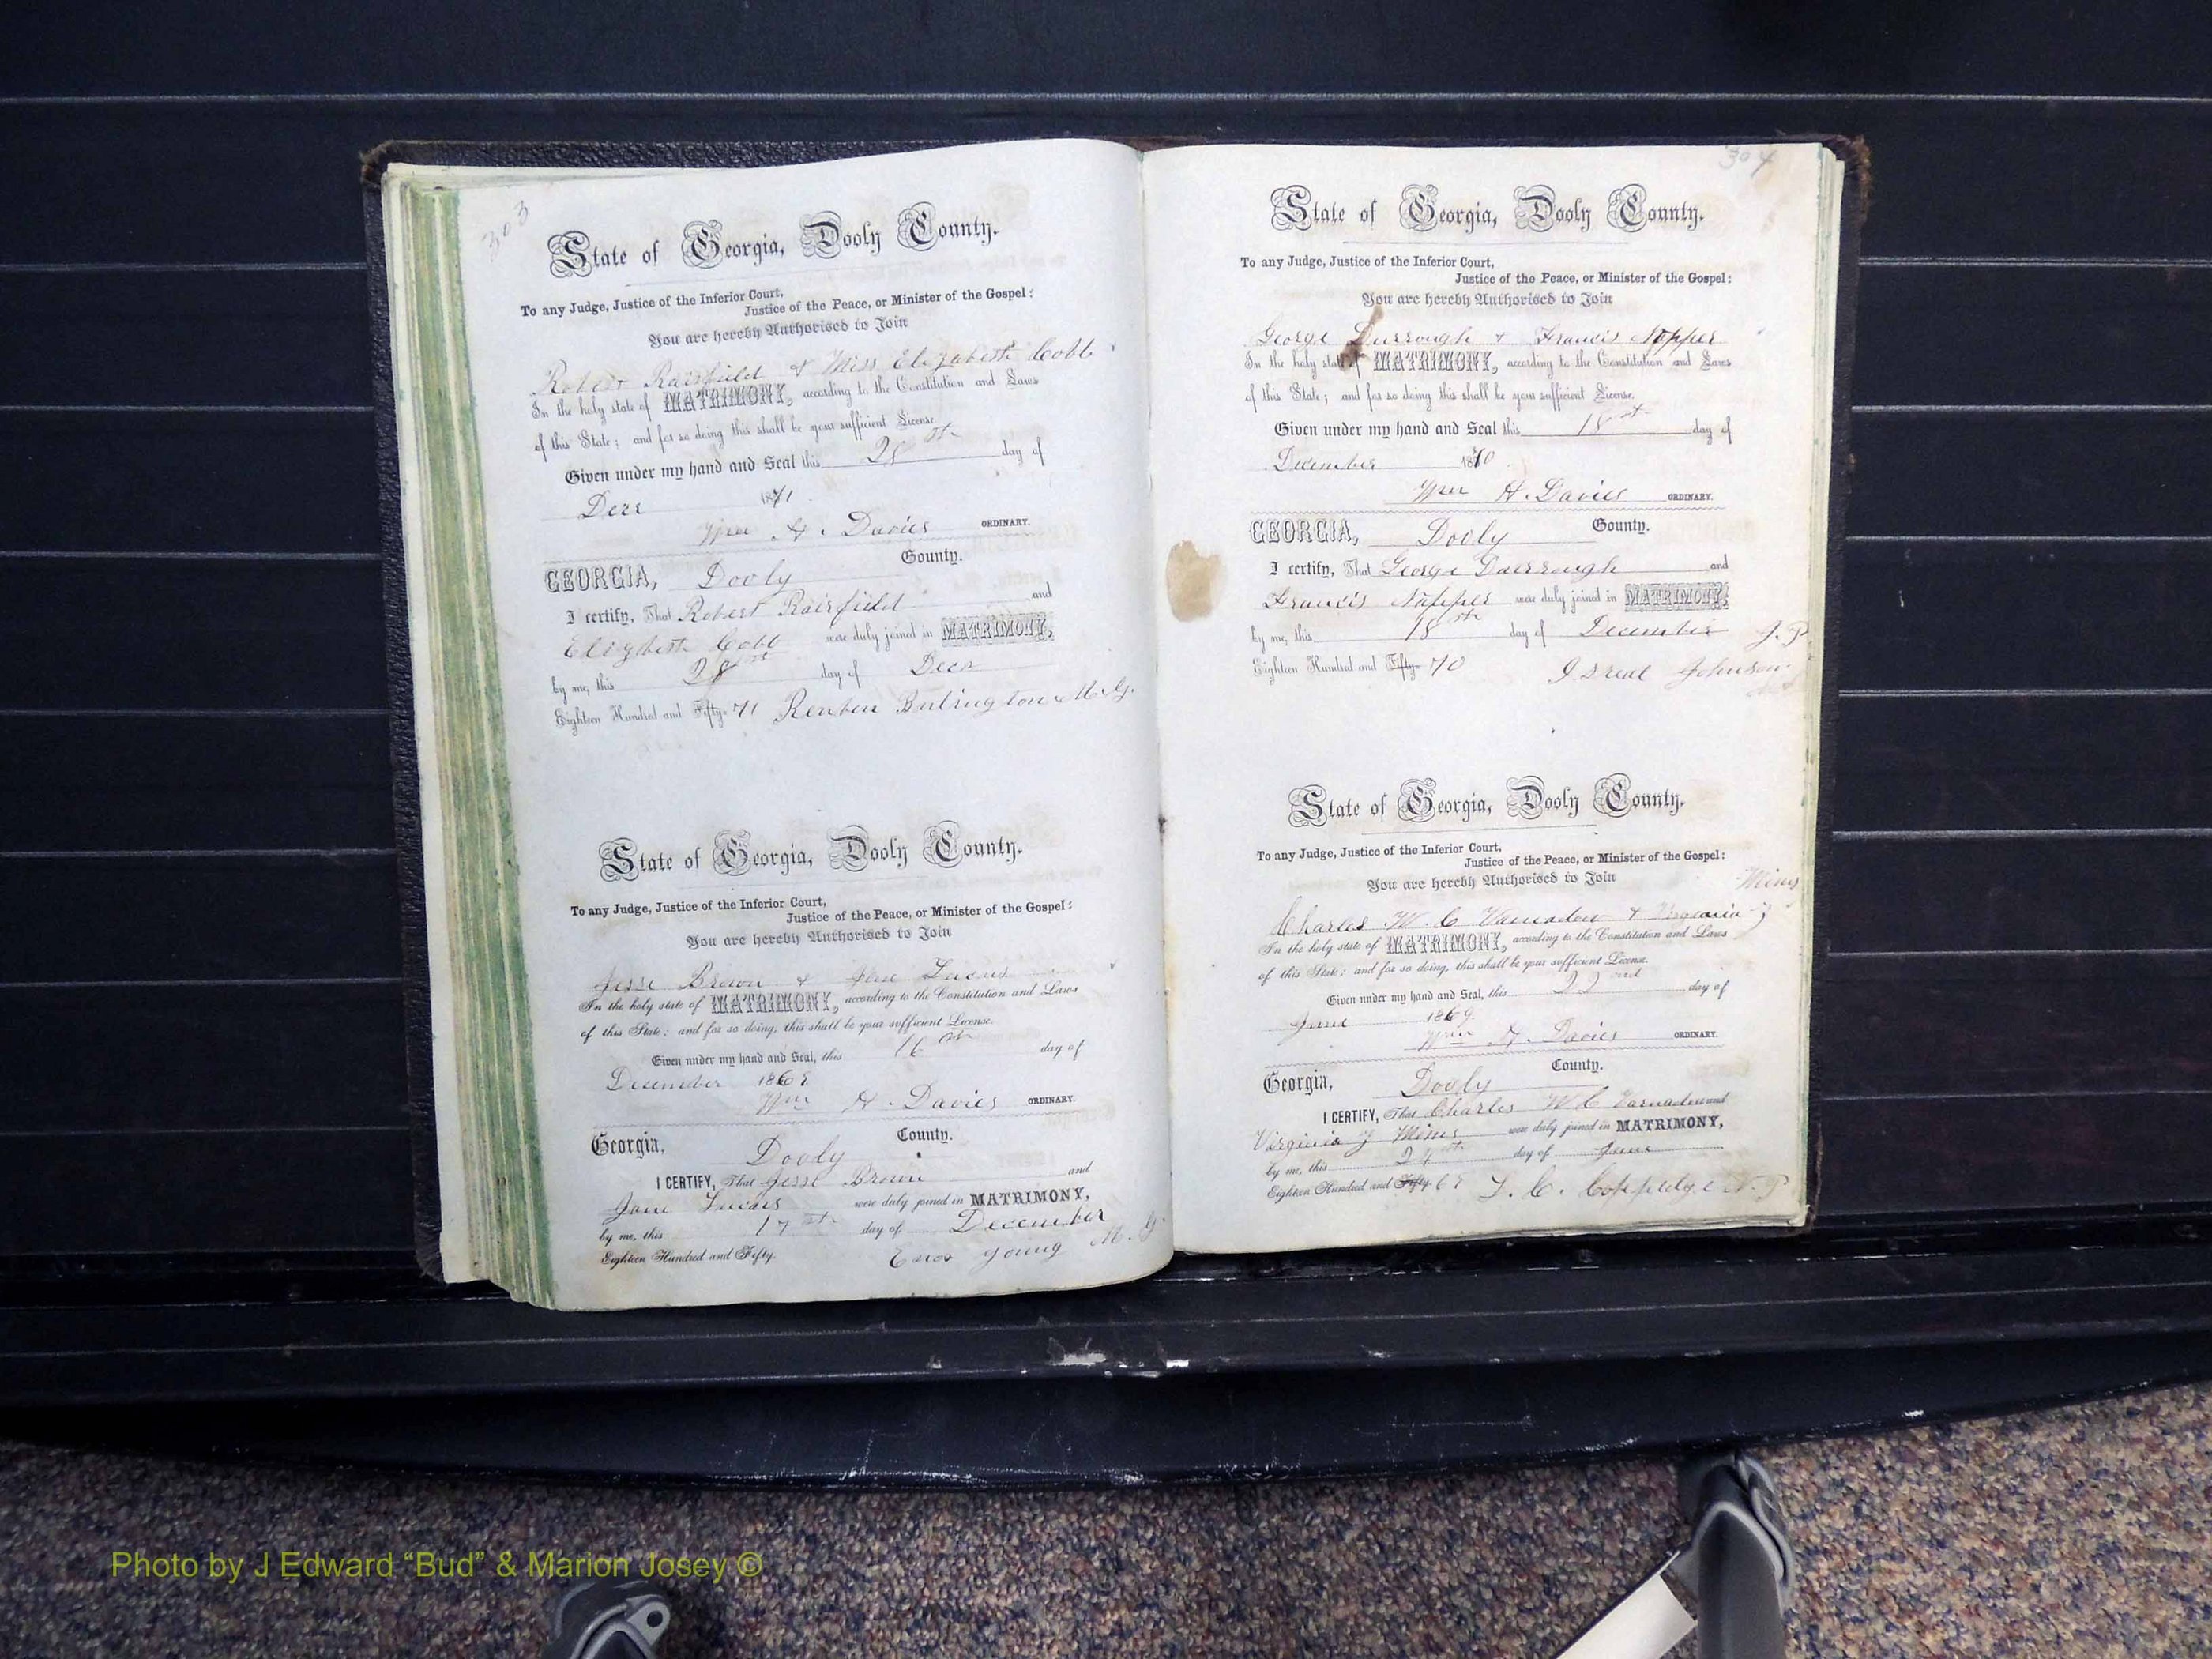 303
State of Georgia, Dooly County.
To any Judge, Justice of the Inferior Court,
Justice of the Peace, or Minister of the Gospel:
You are hereby Authorised to Join
Robert Rairfield & Miss Elizabeth Cobb
In the holy state of MATRIMONY, according to the Constitution and Laws
of this State; and for so doing this shall be your sufficient License.
Given under my hand and Seal this 28th day of
Decr 1871
Wm H. Davies ORDINARY.
GEORGIA, Dooly County.
I certify, That Robert Rairfield and
Elizabeth Cobb were duly joined in MATRIMONY,
by me, this 28th day of Decr
Eighteen Hundred and Fifty- 71 Reuben Burlington M.G.
State of Georgia, Dooly County.
To any Judge, Justice of the Inferior Court,
Justice of the Peace, or Minister of the Gospel:
You are hereby Authorised to Join
Jesse Brown & Jane Lucus
In the holy state of MATRIMONY, according to the Constitution and Laws
of this State: and for so doing, this shall be your sufficient License.
Given under my hand and Seal, this 16th day of
December 1869
Wm H. Davies ORDINARY.
Georgia, Dooly County.
I CERTIFY, That Jesse Brown and
Jane Lucus were duly joined in MATRIMONY,
by me, this 17th day of December
Eighteen Hundred and Fifty. Enos Young M. G.
304
State of Georgia, Dooly County.
To any Judge, Justice of the Inferior Court,
Justice of the Peace, or Minister of the Gospel:
You are hereby Authorised to Join
George Durrough & Francis Napper
In the holy state of MATRIMONY, according to the Constitution and Laws
of this State; and for so doing this shall be your sufficient License.
Given under my hand and Seal this 18th day of
December 1870
Wm H. Davies ORDINARY.
GEORGIA, Dooly County.
I certify, That George Durrough and
Francis Napper were duly joined in MATRIMONY,
by me, this 18th day of December J. P
Eighteen Hundred and Fifty- 70 Isreal Johnson
State of Georgia, Dooly County.
To any Judge, Justice of the Inferior Court,
Justice of the Peace, or Minister of the Gospel:
You are hereby Authorised to Join
Mims
Charles W. C Varnadow & Virginia J
In the holy state of MATRIMONY, according to the Constitution and Laws
of this State: and for so doing, this shall be your sufficient License.
Given under my hand and Seal, this 22nd day of
June 1869
Wm H. Davies ORDINARY.
Georgia, Dooly County.
I CERTIFY, That Charles W. C Varnadow and
Virginia J Mims were duly joined in MATRIMONY,
by me, this 24th day of June
Eighteen Hundred and Fifty 69 L. C. Coppedge N. P
Photo by J Edward “Bud” & Marion Josey ©